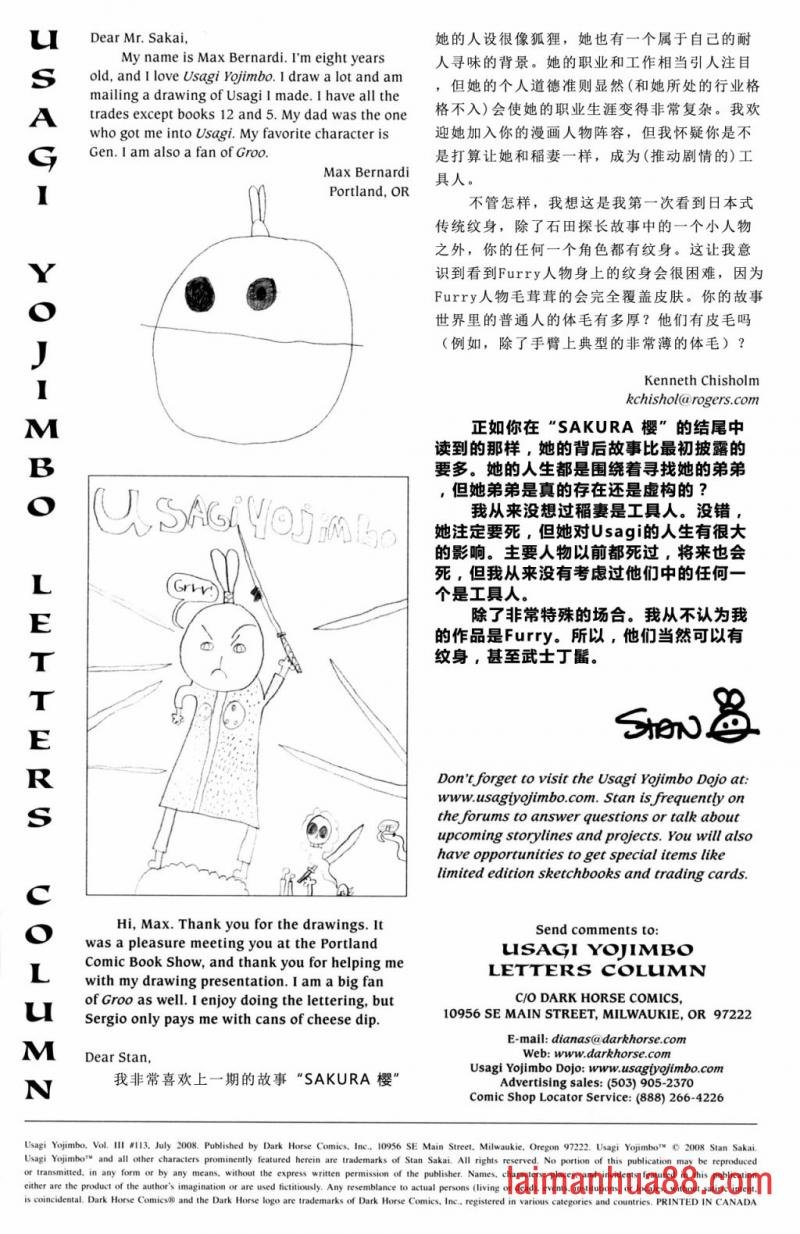 USAGI YOJIMBO LETTERS COLUMN
Dear Mr. Sakai,
My name is Max Bernardi. I'm eight years
old, and I love Usagi Yojimbo. I draw a lot and am
mailing a drawing of Usagi I made. I have all the
trades except books 12 and 5. My dad was the one
who got me into Usagi. My favorite character is
Gen. I am also a fan of Groo.
Max Bernardi
Portland, OR
USAGI YOJIMBO
Grrr!
Hi, Max. Thank you for the drawings. It
was a pleasure meeting you at the Portland
Comic Book Show, and thank you for helping me
with my drawing presentation. I am a big fan
of Groo as well. I enjoy doing the lettering, but
Sergio only pays me with cans of cheese dip.
Dear Stan,
我非常喜欢上一期的故事“SAKURA 樱”
她的人设很像狐狸，她也有一个属于自己的耐
人寻味的背景。她的职业和工作相当引人注目
，但她的个人道德准则显然(和她所处的行业格
格不入)会使她的职业生涯变得非常复杂。我欢
迎她加入你的漫画人物阵容，但我怀疑你是不
是打算让她和稻妻一样，成为(推动剧情的)工
具人。
不管怎样，我想这是我第一次看到日本式
传统纹身，除了石田探长故事中的一个小人物
之外，你的任何一个角色都有纹身。这让我意
识到看到Furry人物身上的纹身会很困难，因为
Furry人物毛茸茸的会完全覆盖皮肤。你的故事
世界里的普通人的体毛有多厚？他们有皮毛吗
（例如，除了手臂上典型的非常薄的体毛）？
Kenneth Chisholm
kchishol@rogers.com
正如你在“SAKURA 樱”的结尾中
读到的那样，她的背后故事比最初披露的
要多。她的人生都是围绕着寻找她的弟弟
，但她弟弟是真的存在还是虚构的？
我从来没想过稻妻是工具人。没错，
她注定要死，但她对Usagi的人生有很大
的影响。主要人物以前都死过，将来也会
死，但我从来没有考虑过他们中的任何一
个是工具人。
除了非常特殊的场合。我从不认为我
的作品是Furry。所以，他们当然可以有
纹身，甚至武士丁髷。
STAN
Don't forget to visit the Usagi Yojimbo Dojo at:
www.usagiyojimbo.com. Stan is frequently on
the forums to answer questions or talk about
upcoming storylines and projects. You will also
have opportunities to get special items like
limited edition sketchbooks and trading cards.
Send comments to:
USAGI YOJIMBO
LETTERS COLUMN
C/O DARK HORSE COMICS,
10956 SE MAIN STREET, MILWAUKIE, OR 97222
E-mail: dianas@darkhorse.com
Web: www.darkhorse.com
Usagi Yojimbo Dojo: www.usagiyojimbo.com
Advertising sales: (503) 905-2370
Comic Shop Locator Service: (888) 266-4226
Usagi Yojimbo, Vol. III #113, July 2008. Published by Dark Horse Comics, Inc., 10956 SE Main Street, Milwaukie, Oregon 97222. Usagi Yojimbo™ © 2008 Stan Sakai.
Usagi Yojimbo™ and all other characters prominently featured herein are trademarks of Stan Sakai. All rights reserved. No portion of this publication may be reproduced
or transmitted, in any form or by any means, without the express written permission of the publisher. Names, characters, places, and incidents featured in this publication
either are the product of the author's imagination or are used fictitiously. Any resemblance to actual persons (living or dead), events, institutions, or locales, without satiric intent,
is coincidental. Dark Horse Comics® and the Dark Horse logo are trademarks of Dark Horse Comics, Inc., registered in various categories and countries. PRINTED IN CANADA
laimanhua88.com